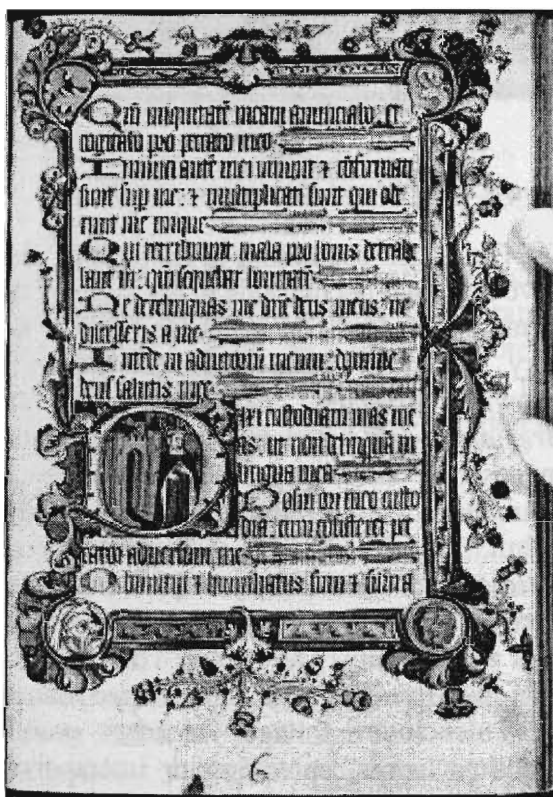 Qm̄ iniquitatē meam anunciabo: et
cogitabo pro peccato meo
Inimici autē mei uiuunt ⁊ cōfirmati
sunt sup me: ⁊ multiplicati sunt qui ode
runt me inique
Qui retribuunt mala pro bonis detrahe
bant m̄: qm̄ sequebar bonitatē
Ne derelinquas me dn̄e deus meus: ne
discesseris a me
Intēde in adiutoriū meum: domine
deus salutis mee
Dixi custodiam uias me
as: ut non delinquā in
lingua mea
Posui ori meo custo
diā: cum cōsisteret pec
cator aduersum me
Obmutui ⁊ humiliatus sum ⁊ silui a
6